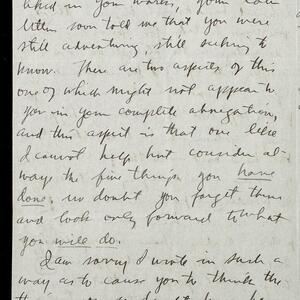 in your
letter soon told me that you were
still adventuring, still seeking to
know. There are two aspects of this
one of which might not appear to
you in your complete abnegation,
and this aspect is that one like
I cannot help but consider al-
ways the fine things you have
done; no doubt you forget them
and look only forward to what
you will do.
I am sorry I wrote in such a
way as to cause you to think the